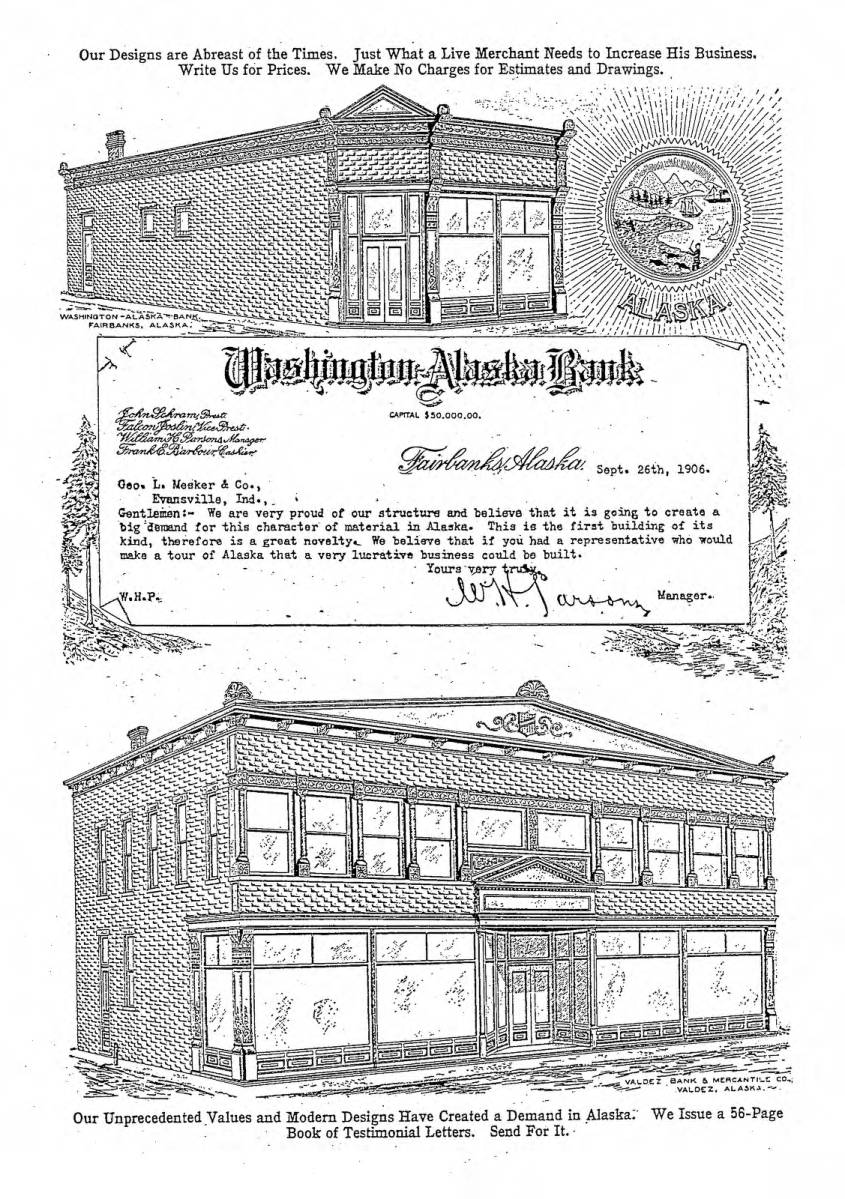 Our Designs are Abreast of the Times. Just What a Live Merchant Needs to Increase His Business.
Write Us for Prices. We Make No Charges for Estimates and Drawings.
ALASKA.
WASHINGTON-ALASKA-BANK,
FAIRBANKS, ALASKA.
Washington-Alaska Bank
CAPITAL $50,000.00.
John Schram, Prest.
Falcon Joslin, Vice Prest.
William H. Parsons, Manager
Frank E. Barbour, Cashier
Fairbanks, Alaska, Sept. 26th, 1906.
Geo. L. Mesker & Co.,
Evansville, Ind.,
Gentlemen:- We are very proud of our structure and believe that it is going to create a
big demand for this character of material in Alaska. This is the first building of its
kind, therefore is a great novelty. We believe that if you had a representative who would
make a tour of Alaska that a very lucrative business could be built.
Yours very truly,
W.H.P. W.H. Parsons Manager.
VALDEZ BANK & MERCANTILE CO.,
VALDEZ, ALASKA.
Our Unprecedented Values and Modern Designs Have Created a Demand in Alaska. We Issue a 56-Page
Book of Testimonial Letters. Send For It.